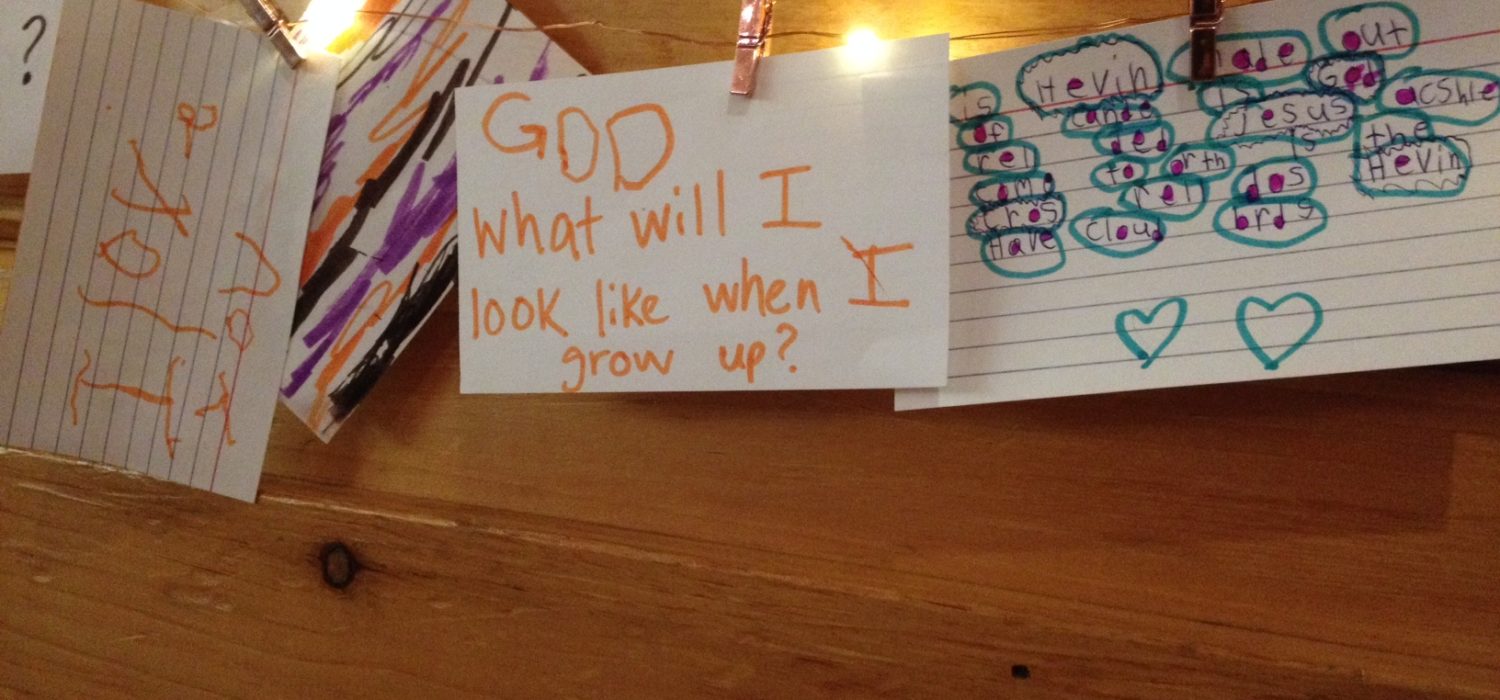 ?
GOD
what will I
look like when I
grow up?
is Hevin made out
of cande is God acshle
rel ded Jesus is the
came to orth Hevin
cros rel dos
Have cloud brds